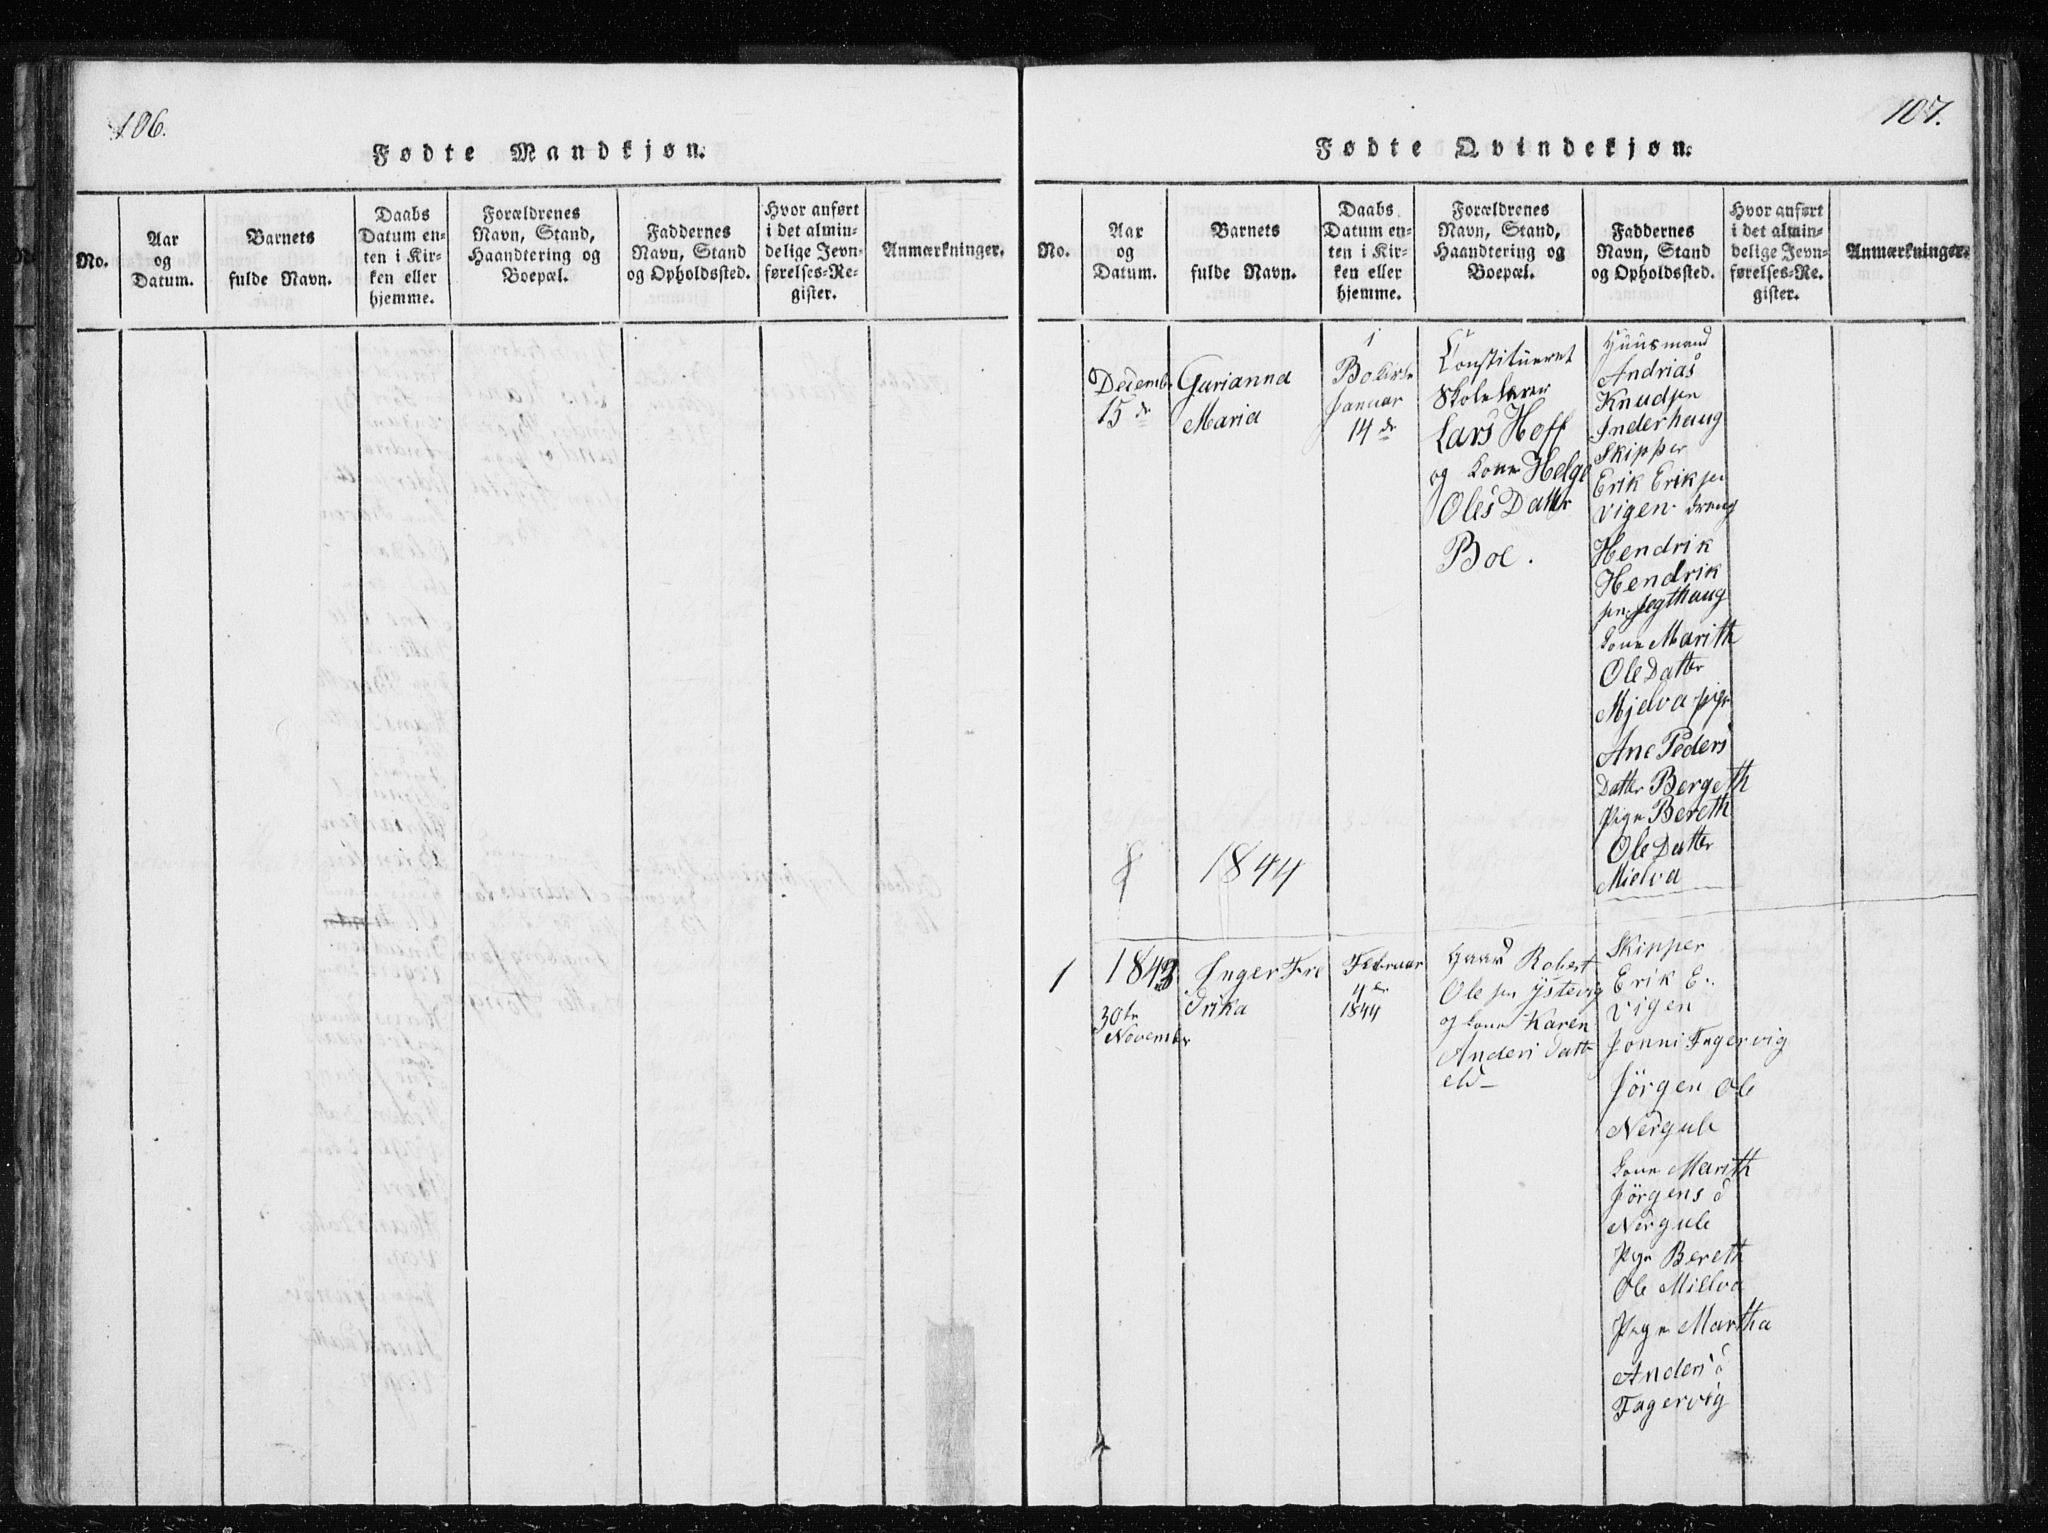 106.
Fødte Mandkjøn.
No.
Aar
og
Datum.
Barnets
fulde Navn.
Daabs
Datum en-
ten i Kir-
ken eller
hjemme.
Forældrenes
Navn, Stand,
Haandtering og
Boepæl.
Faddernes
Navn, Stand
og Opholdssted.
Hvor anført
i det almin-
delige Jevn-
førelses-Re-
gister.
Anmærkninger.
107.
Fødte Qvindekjøn.
No.
Aar
og
Datum.
Barnets
fulde Navn.
Daabs
Datum en-
ten i Kir-
ken eller
hjemme.
Forældrenes
Navn, Stand,
Haandtering og
Boepæl.
Faddernes
Navn, Stand
og Opholdssted.
Hvor anført
i det almin-
delige Jevn-
førelses-Re-
gister.
Anmærkninger.
Decembr
15 de
Gurianna
Maria
i
Januar
14 de
Constitueret
Skolelærer
Lars Hoff
og kone Helge
Oles Datter
Boe.
Huusmand
Andrias
Knudsen
Inderhaug
Skipper
Erik Eriksen
Vigen dreng
Hendrik
Hendrik
sen Jegthaug
kone Marith
Ole Datter
Mjelva pige
Ane Peders
Datter Bergeth
Pige Bereth
Ole Datter
Mielva
1844
1
1843
30te
November
Inger Fre
drika
Februar
4de
1844
Gaard Robert
Ole sen Ystevig
og kone Karen
Anders Datt
Skipper
Erik E.
Vigen
Jonni Fagervig
Jörgen Ole
Nergule
kone Marith
Jörgens d
Nergule
Pige Bereth
Ole Mielva
Pige Martha
Anders d
Fagervig